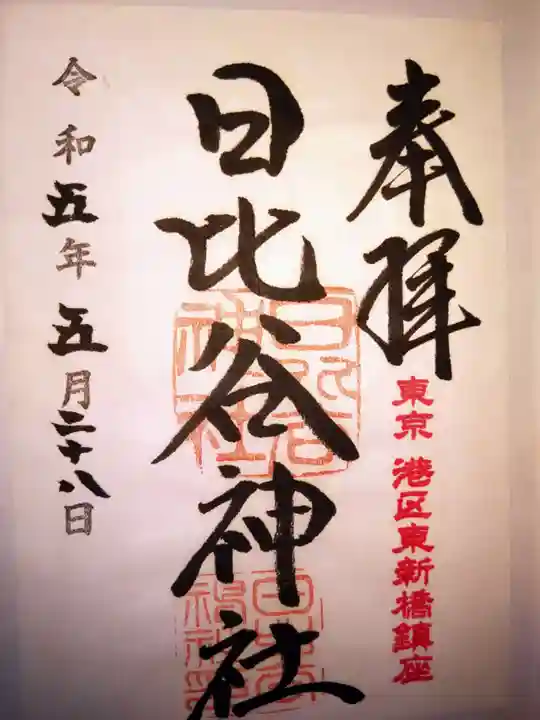 奉拝
東京 港区東新橋鎮座
日比谷神社
日比谷神社
令和五年五月二十八日